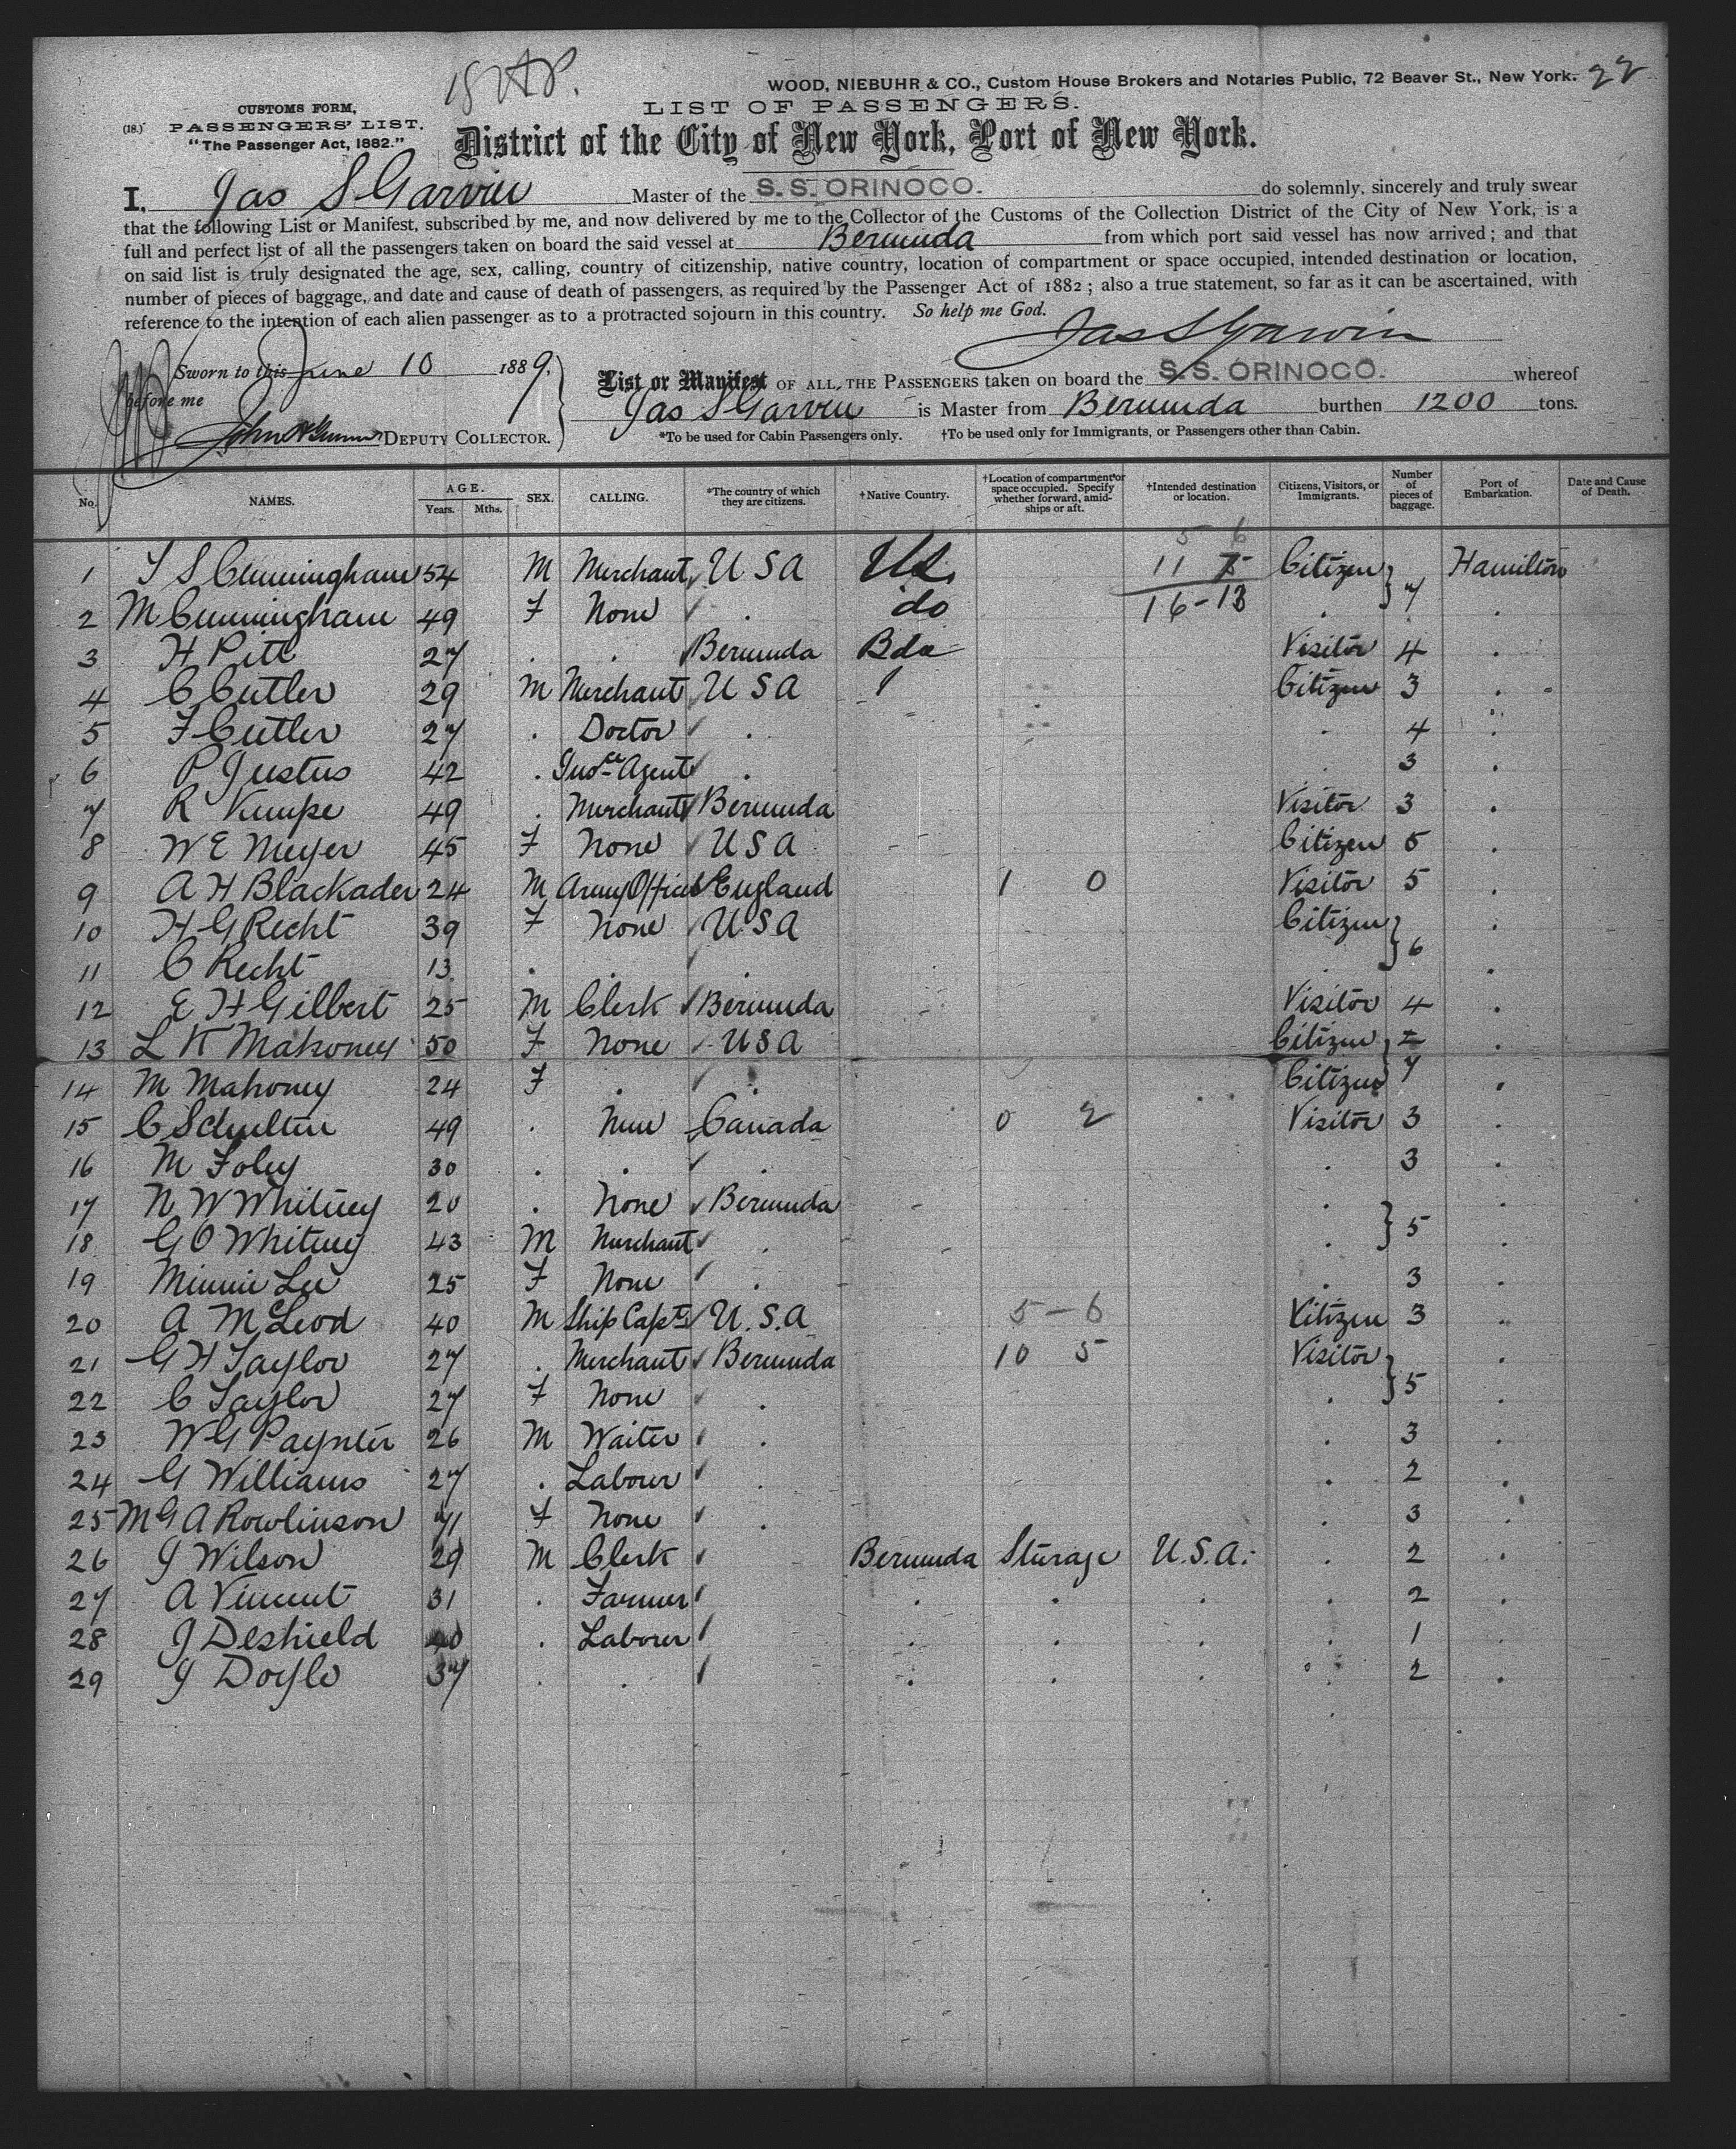 18 22
WOOD, NIEBUHR & CO., Custom House Brokers and Notaries Public, 72 Beaver St., New York.
CUSTOMS FORM,
(18.) PASSENGERS' LIST.
"The Passenger Act, 1882."
LIST OF PASSENGERS.
District of the City of New York, Port of New York.
I, Jas S Garvin Master of the S. S. ORINOCO. do solemnly, sincerely and truly swear
that the following List or Manifest, subscribed by me, and now delivered by me to the Collector of the Customs of the Collection District of the City of New York, is a
full and perfect list of all the passengers taken on board the said vessel at Bermuda from which port said vessel has now arrived; and that
on said list is truly designated the age, sex, calling, country of citizenship, native country, location of compartment or space occupied, intended destination or location,
number of pieces of baggage, and date and cause of death of passengers, as required by the Passenger Act of 1882; also a true statement, so far as it can be ascertained, with
reference to the intention of each alien passenger as to a protracted sojourn in this country. So help me God.
Jas S Garvin
Sworn to this June 10 1889.
before me
DEPUTY COLLECTOR.
List or Manifest OF ALL THE PASSENGERS taken on board the S. S. ORINOCO. whereof
Jas S Garvin is Master from Bermuda burthen 1200 tons.
*To be used for Cabin Passengers only. †To be used only for Immigrants, or Passengers other than Cabin.
No. NAMES. AGE. Years. Mths. SEX. CALLING. *The country of which they are citizens. †Native Country. †Location of compartment or space occupied. Specify whether forward, amidships or aft. †Intended destination or location. Citizens, Visitors, or Immigrants. Number of pieces of baggage. Port of Embarkation. Date and Cause of Death.
5 6
1 T S Cunningham 54 M Merchant U S A U S 11 Citizen } 7 Hamilton
2 M Cunningham 49 F None . do 16-13 . .
3 H Pitt 27 . . Bermuda Bda Visitor 4 .
4 C Cutler 29 M Merchant U S A Citizen 3 .
5 F Cutler 27 . Doctor . . 4 .
6 P Justus 42 . Insce Agent . . 3 .
7 R Kempe 49 . Merchant Bermuda Visitor 3 .
8 W E Meyer 45 F None U S A Citizen 5 .
9 A H Blackader 24 M Army Officer England 1 0 Visitor 5 .
10 H G Recht 39 F None U S A Citizen } 6 .
11 C Recht 13 . . . . .
12 E H Gilbert 25 M Clerk Bermuda Visitor 4 .
13 L K Mahoney 50 F None U S A Citizen } .
14 M Mahoney 24 F . . Citizen 7 .
15 C Schulten 49 . None Canada 0 2 Visitor 3 .
16 M Foley 30 . . . . 3 .
17 N W Whitney 20 . None Bermuda . } 5 .
18 G O Whitney 43 M Merchant . . .
19 Minnie Lee 25 F None . . 3 .
20 A McLeod 40 M Ship Capt U. S. A 5-6 Citizen 3 .
21 G H Taylor 27 . Merchant Bermuda 10 5 Visitor } 5 .
22 C Taylor 27 F None . . .
23 W G Paynter 26 M Waiter . . 3 .
24 G Williams 27 . Labourer . . 2 .
25 M G A Rowlinson 71 F None . . 3 .
26 J Wilson 29 M Clerk Bermuda Sturage U. S. A. . 2 .
27 A Vincent 31 . Farmer . . . . 2 .
28 J Deshield 40 . Labourer . . . . 1 .
29 J Doyle 37 . . . . . . 2 .